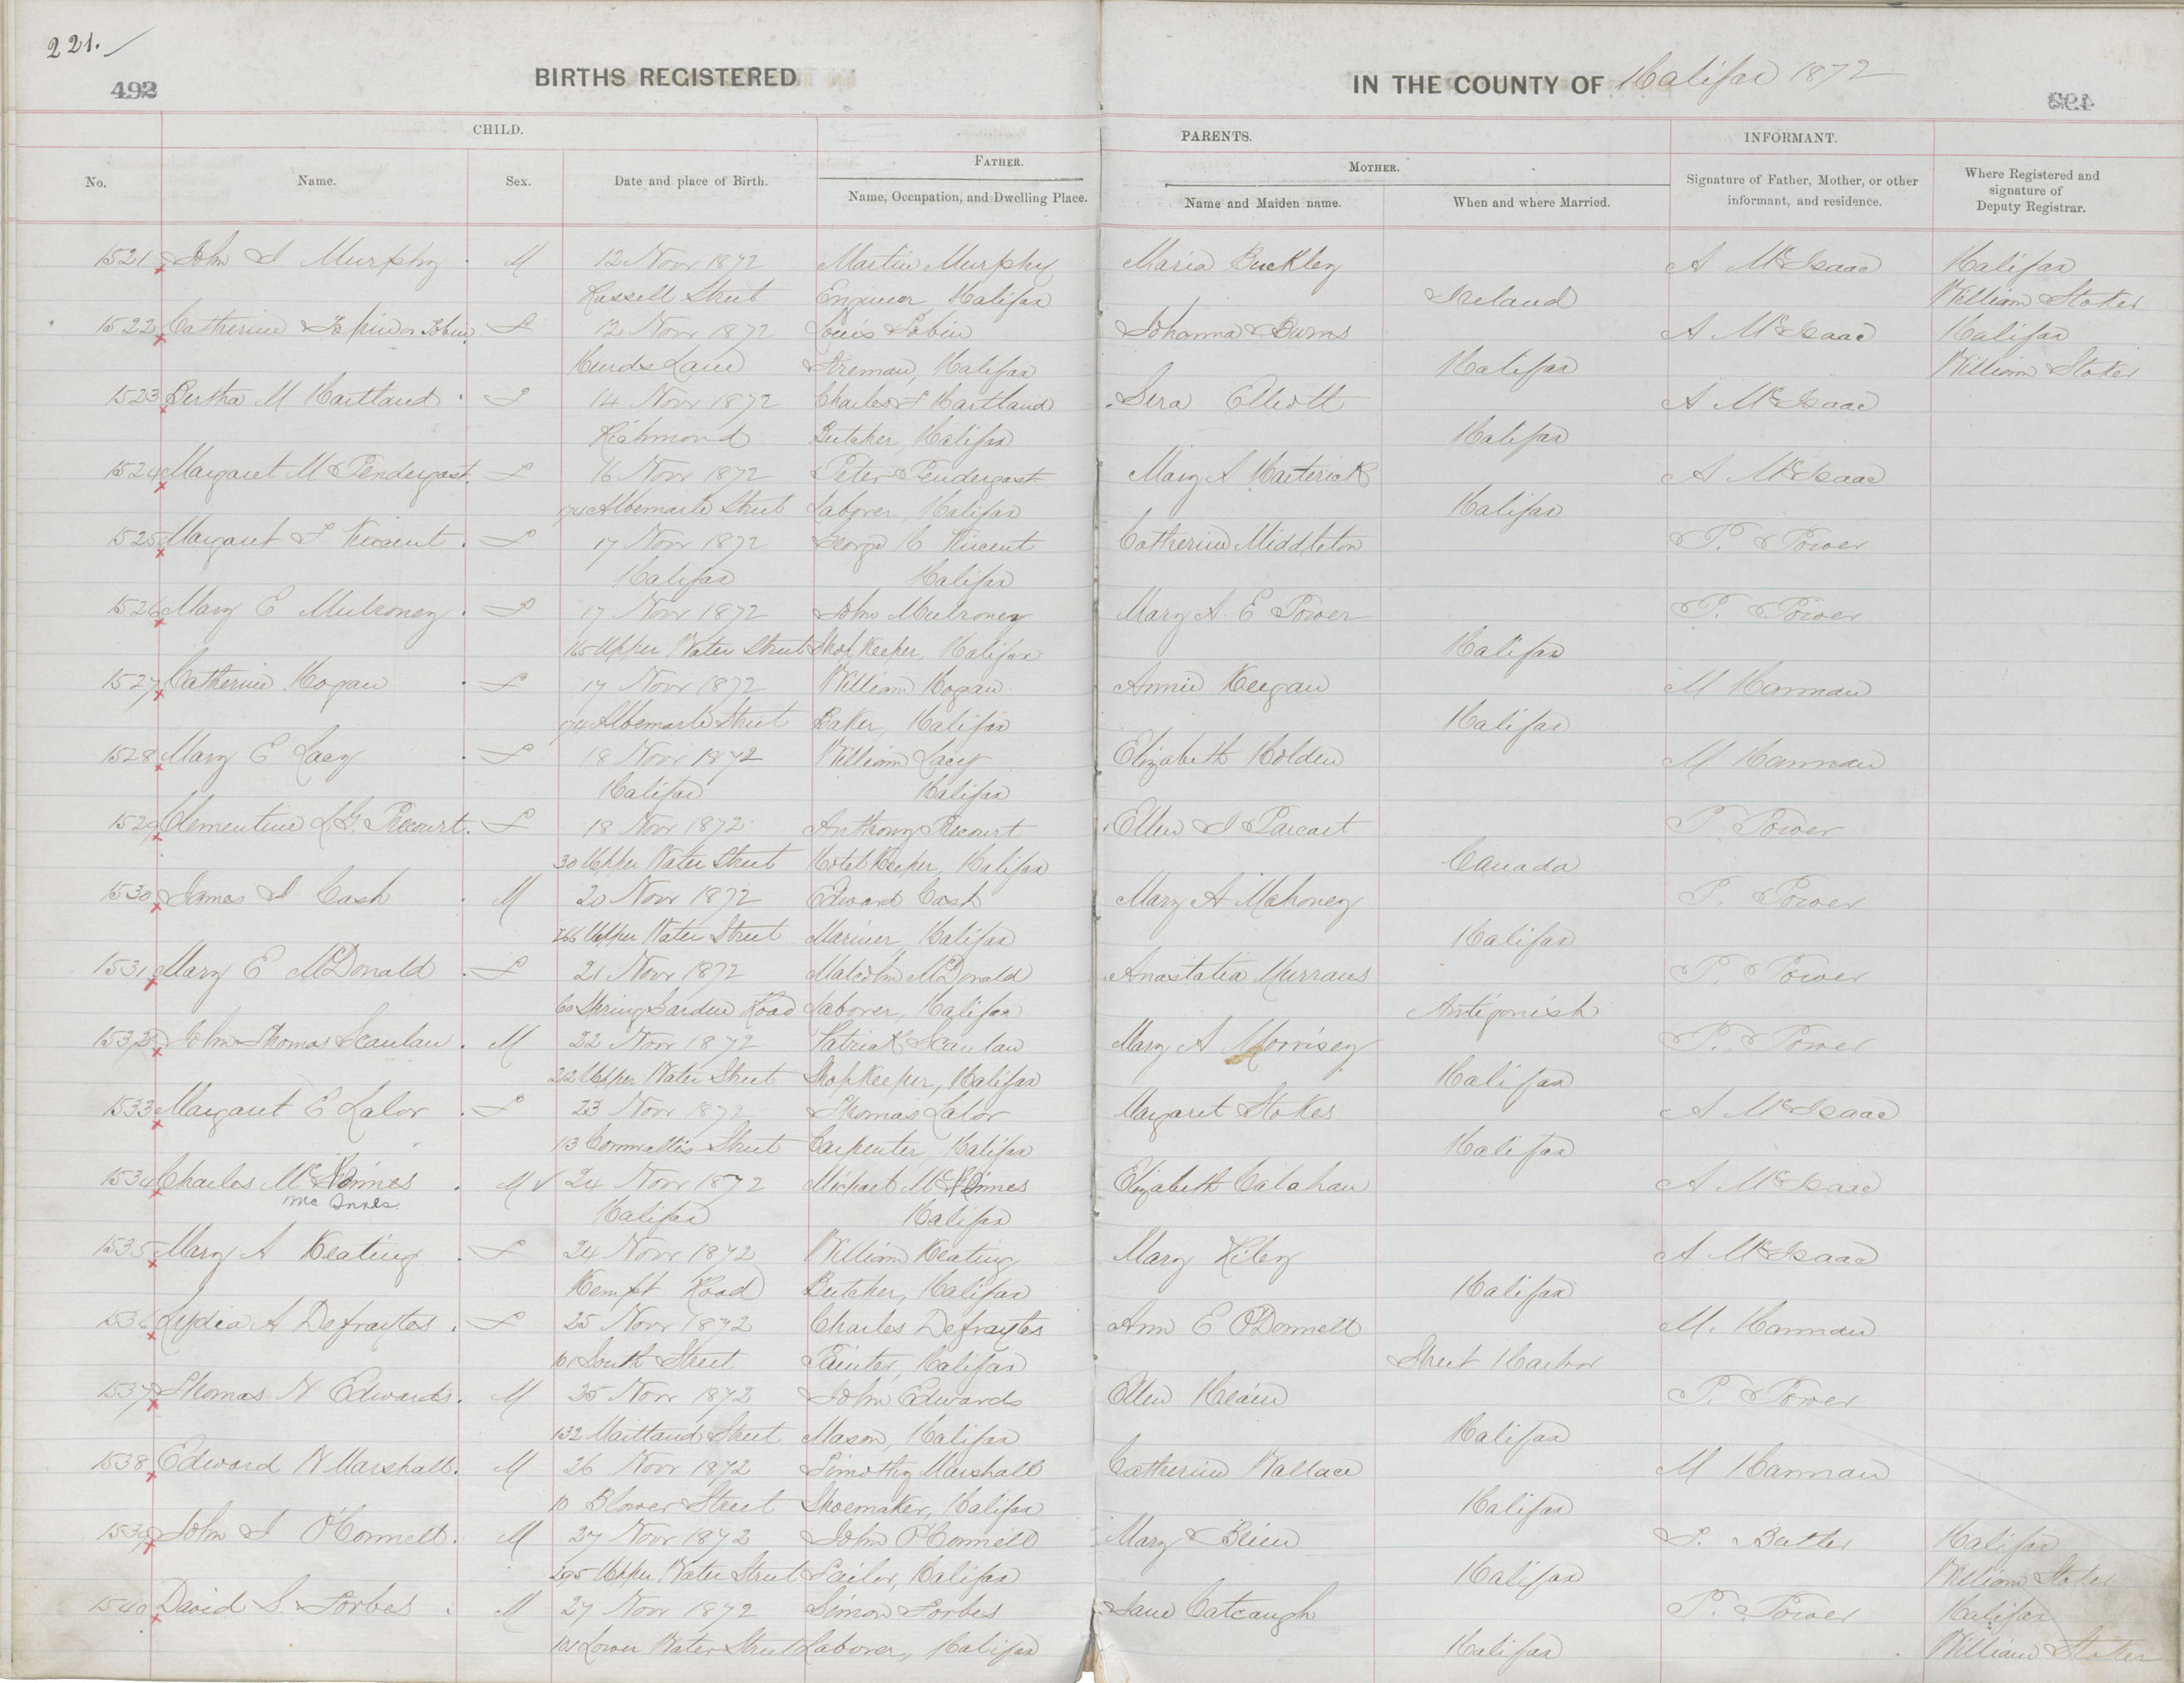 221.
492
BIRTHS REGISTERED
IN THE COUNTY OF Halifax 1872
CHILD.
PARENTS.
INFORMANT.
No.
Name.
Sex.
Date and place of Birth.
FATHER.
Name, Occupation, and Dwelling Place.
MOTHER.
Name and Maiden name.
When and where Married.
Signature of Father, Mother, or other informant, and residence.
Where Registered and signature of Deputy Registrar.
1521 John J Murphy M 12 Novr 1872 Martin Murphy Maria Buckley A McIsaac Halifax
Russell Street Engineer Halifax Ireland William Stoker
1522 Catherine Topin or Tobin F 12 Novr 1872 Louis Tobin Johanna Burns A McIsaac Halifax
Hurds Lane Fireman, Halifax Halifax William Stoker
1523 Bertha M Hartland F 14 Novr 1872 Charles F Hartland Sera Elliott A McIsaac
Richmond Butcher, Halifax Halifax
1524 Margaret M Pendergast F 16 Novr 1872 Peter Pendergast Mary A Harterick A McIsaac
174 Albemarle Street Laborer, Halifax Halifax
1525 Margaret J Vincent F 17 Novr 1872 George H Vincent Catherine Middleton P. Power
Halifax Halifax
1526 Mary E Mulroney F 17 Novr 1872 John Mulroney Mary A. E Power P. Power
165 Upper Water Street Shop Keeper, Halifax Halifax
1527 Catherine Hogan F 17 Novr 1872 William Hogan Annie Keegan M Hannan
174 Albemarle Street Baker, Halifax Halifax
1528 Mary E Lacy F 18 Novr 1872 William Lacy Elizabeth Holden M Hannan
Halifax Halifax
1529 Clementine L.G. Recourt F 18 Novr 1872 Anthony Recourt Ellen J P. Power
30 Upper Water Street Hotel Keeper, Halifax Canada
1530 James J Cash M 20 Novr 1872 Edward Cash Mary A Mahoney P. Power
266 Upper Water Street Mariner, Halifax Halifax
1531 Mary E McDonald F 21 Novr 1872 Malcolm McDonald Anastatia Murraus P. Power
60 Spring Garden Road Laborer, Halifax Antigonish
1532 John Thomas Scanlan M 22 Novr 1872 Patrick Scanlan Mary A Morrisey P. Power
212 Upper Water Street Shop Keeper, Halifax Halifax
1533 Margaret E Lalor F 23 Novr 1872 Thomas Lalor Margaret Stokes A McIsaac
113 Cornwallis Street Carpenter, Halifax Halifax
1534 Charles McInnes M 24 Novr 1872 Michael McInnes Elizabeth Calahan A McIsaac
Mc Innes Halifax Halifax
1535 Mary A Keating F 24 Novr 1872 William Keating Mary Kiley A McIsaac
Kempt Road Butcher, Halifax Halifax
1536 Lydia A Defraytes F 25 Novr 1872 Charles Defraytes Ann E O'Donnell M. Hannan
101 South Street Painter, Halifax Sheet Harbor
1537 Thomas N Edwards M 25 Novr 1872 John Edwards Ellen P. Power
132 Maitland Street Mason, Halifax Halifax
1538 Edward W Marshall M 26 Novr 1872 Timothy Marshall Catherine Wallace M Hannan
10 Blower Street Shoemaker, Halifax Halifax
1539 John J O'Connell M 27 Novr 1872 John O'Connell Mary Brien Butler Halifax
295 Upper Water Street Tailor, Halifax Halifax William Stoker
1540 David S. Forbes M 27 Novr 1872 Simon Forbes Jane P. Power Halifax
Lower Water Street Laborer, Halifax Halifax William Stoker